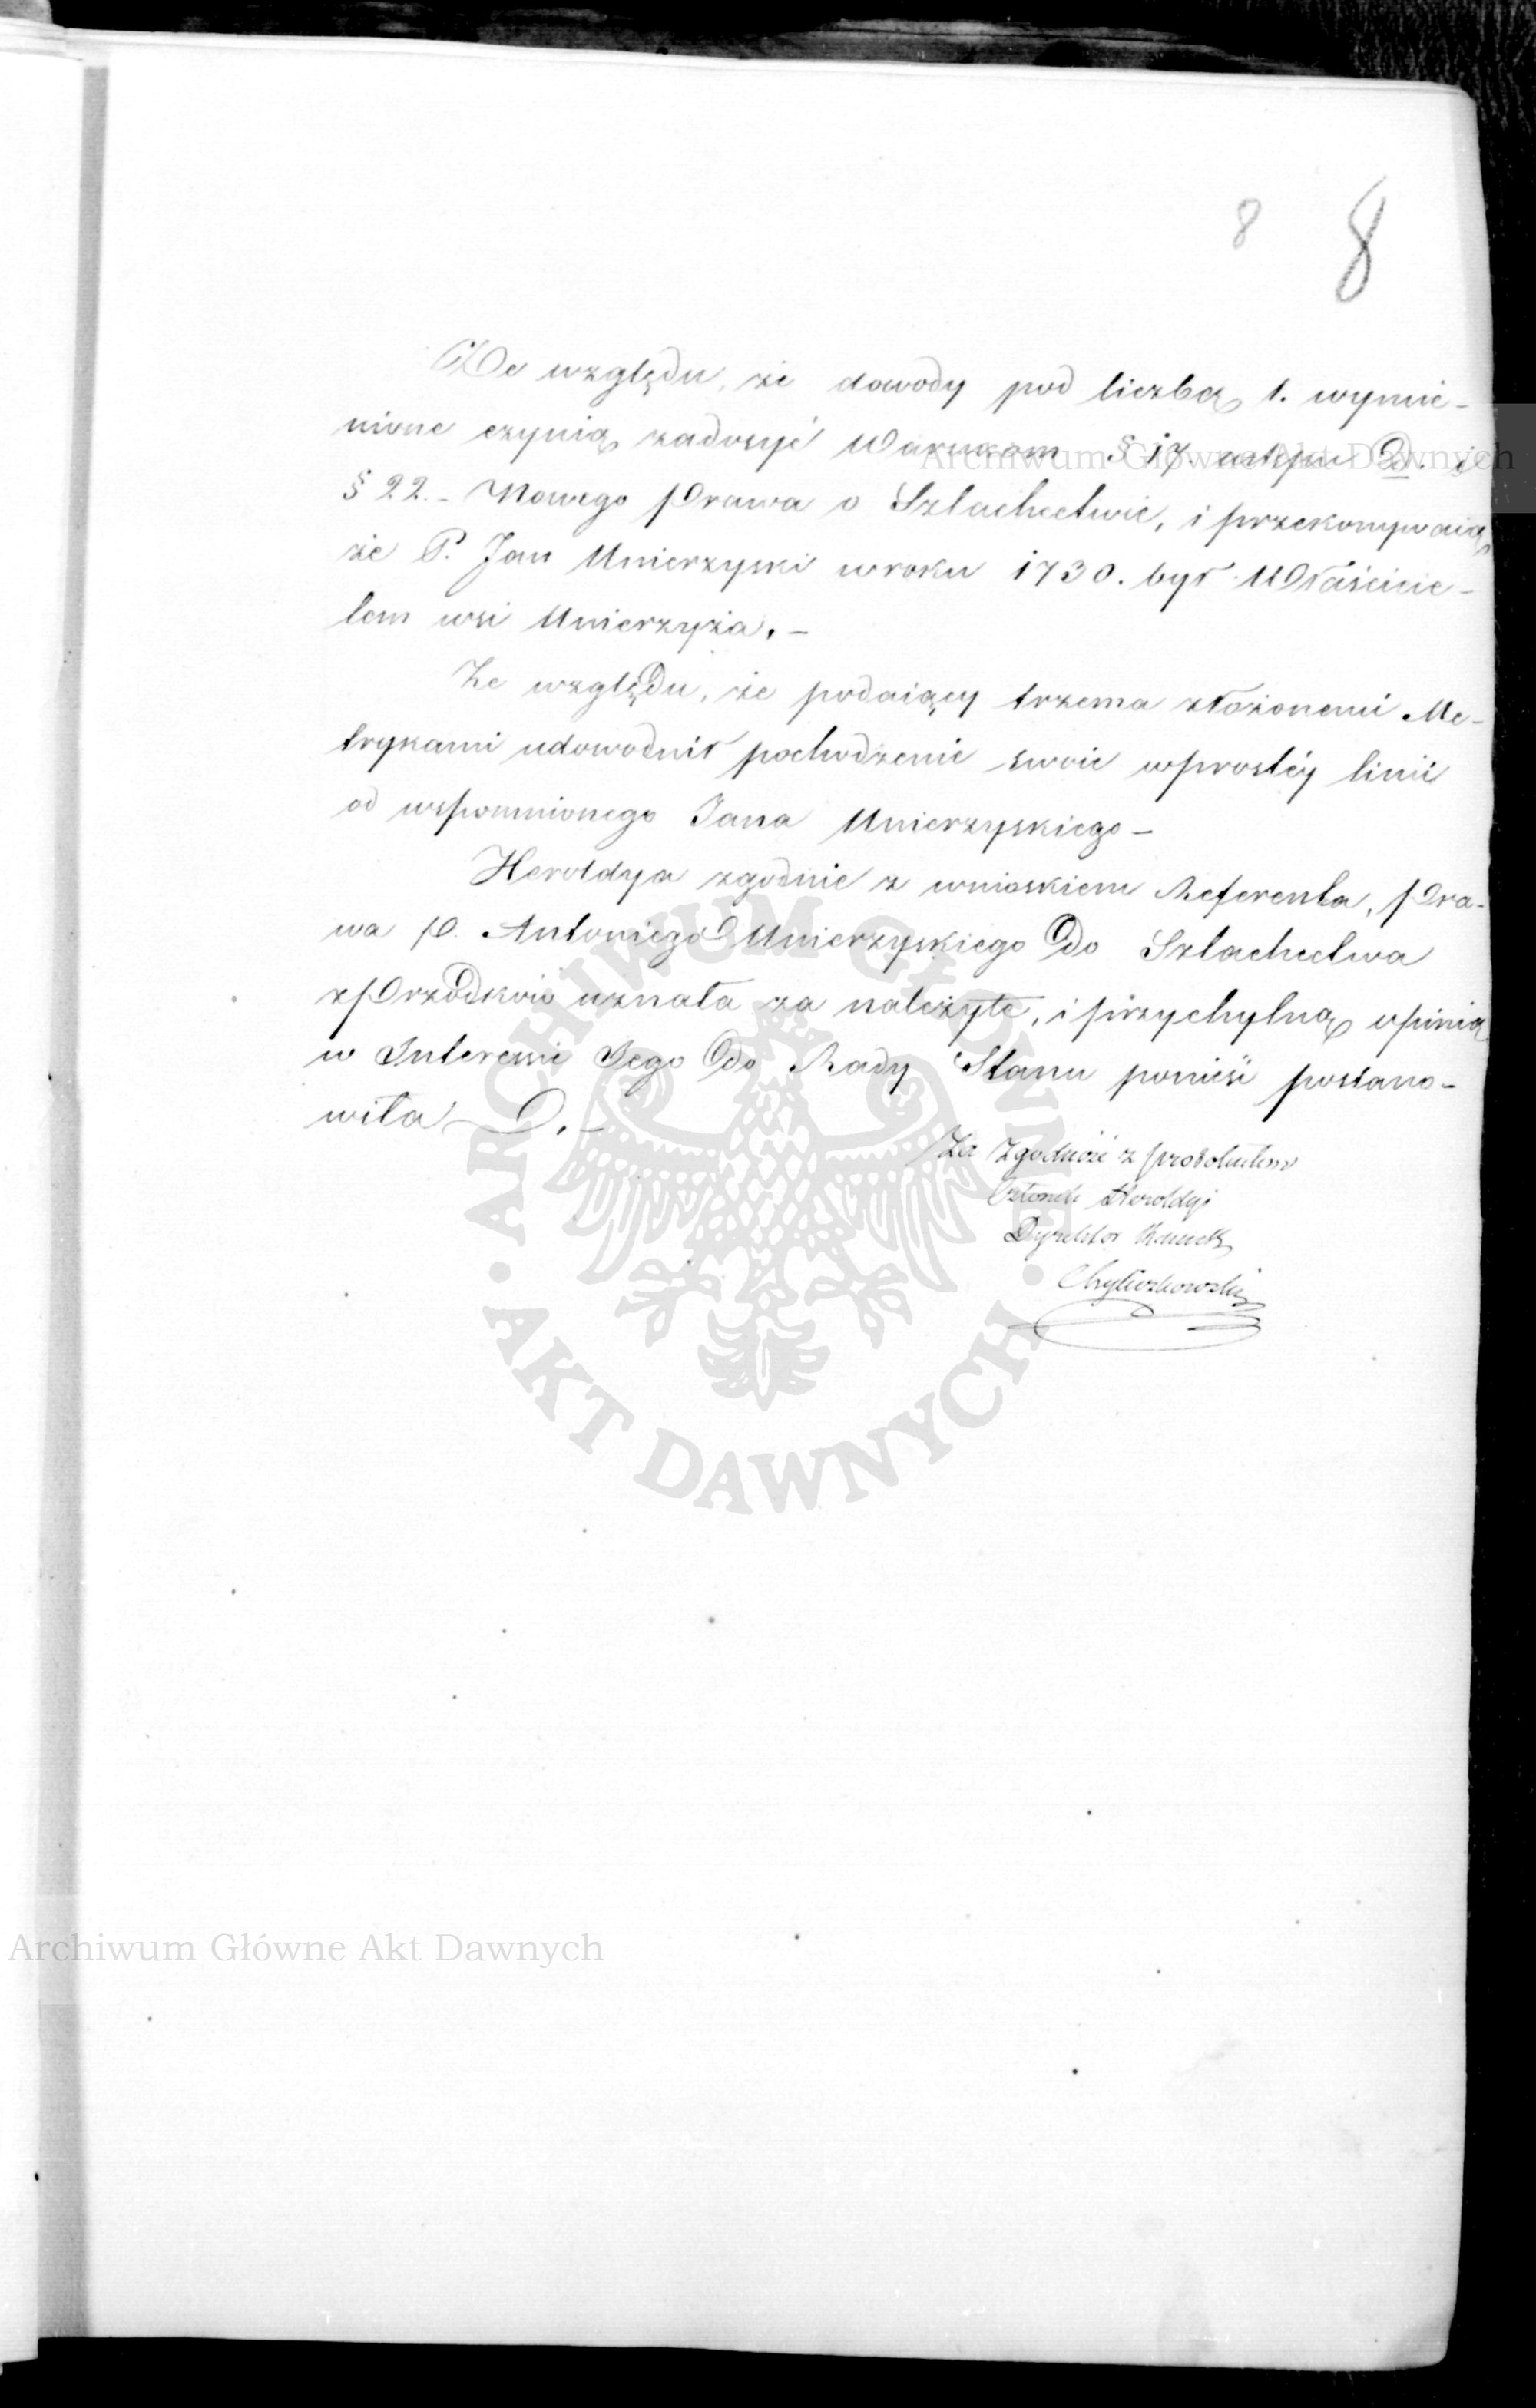 8 8
Ze względu, że dowody pod liczbą 1. wymie-
nione czynią zadosyć Warunkom § 17. ustępu D. i
§ 22.- Nowego Prawa o Szlachectwie, i przekonywaią
że P. Jan Unierzyski w roku 1730. był Właścicie-
lem wsi Unierzyża.-
Ze względu, że podaiący trzema złożonemi Me-
trykami udowodnił pochodzenie swoie w prostéy linii
od wspomnionego Jana Unierzyskiego-
Heroldya zgodnie z wnioskiem Referenta, Pra-
wa P. Antoniego Unierzyskiego do Szlachectwa
z Przodków uznała za należyte, i przychylną opinią
w Interessie Jego do Rady Stanu ponieść postano-
wiła
Za Zgodność z protokułem
Członek Heroldyi
Dyrektor Kancel.
Chyliczkowski
ARCHIWUM GŁÓWNE AKT DAWNYCH
Archiwum Główne Akt Dawnych
Archiwum Główne Akt Dawnych